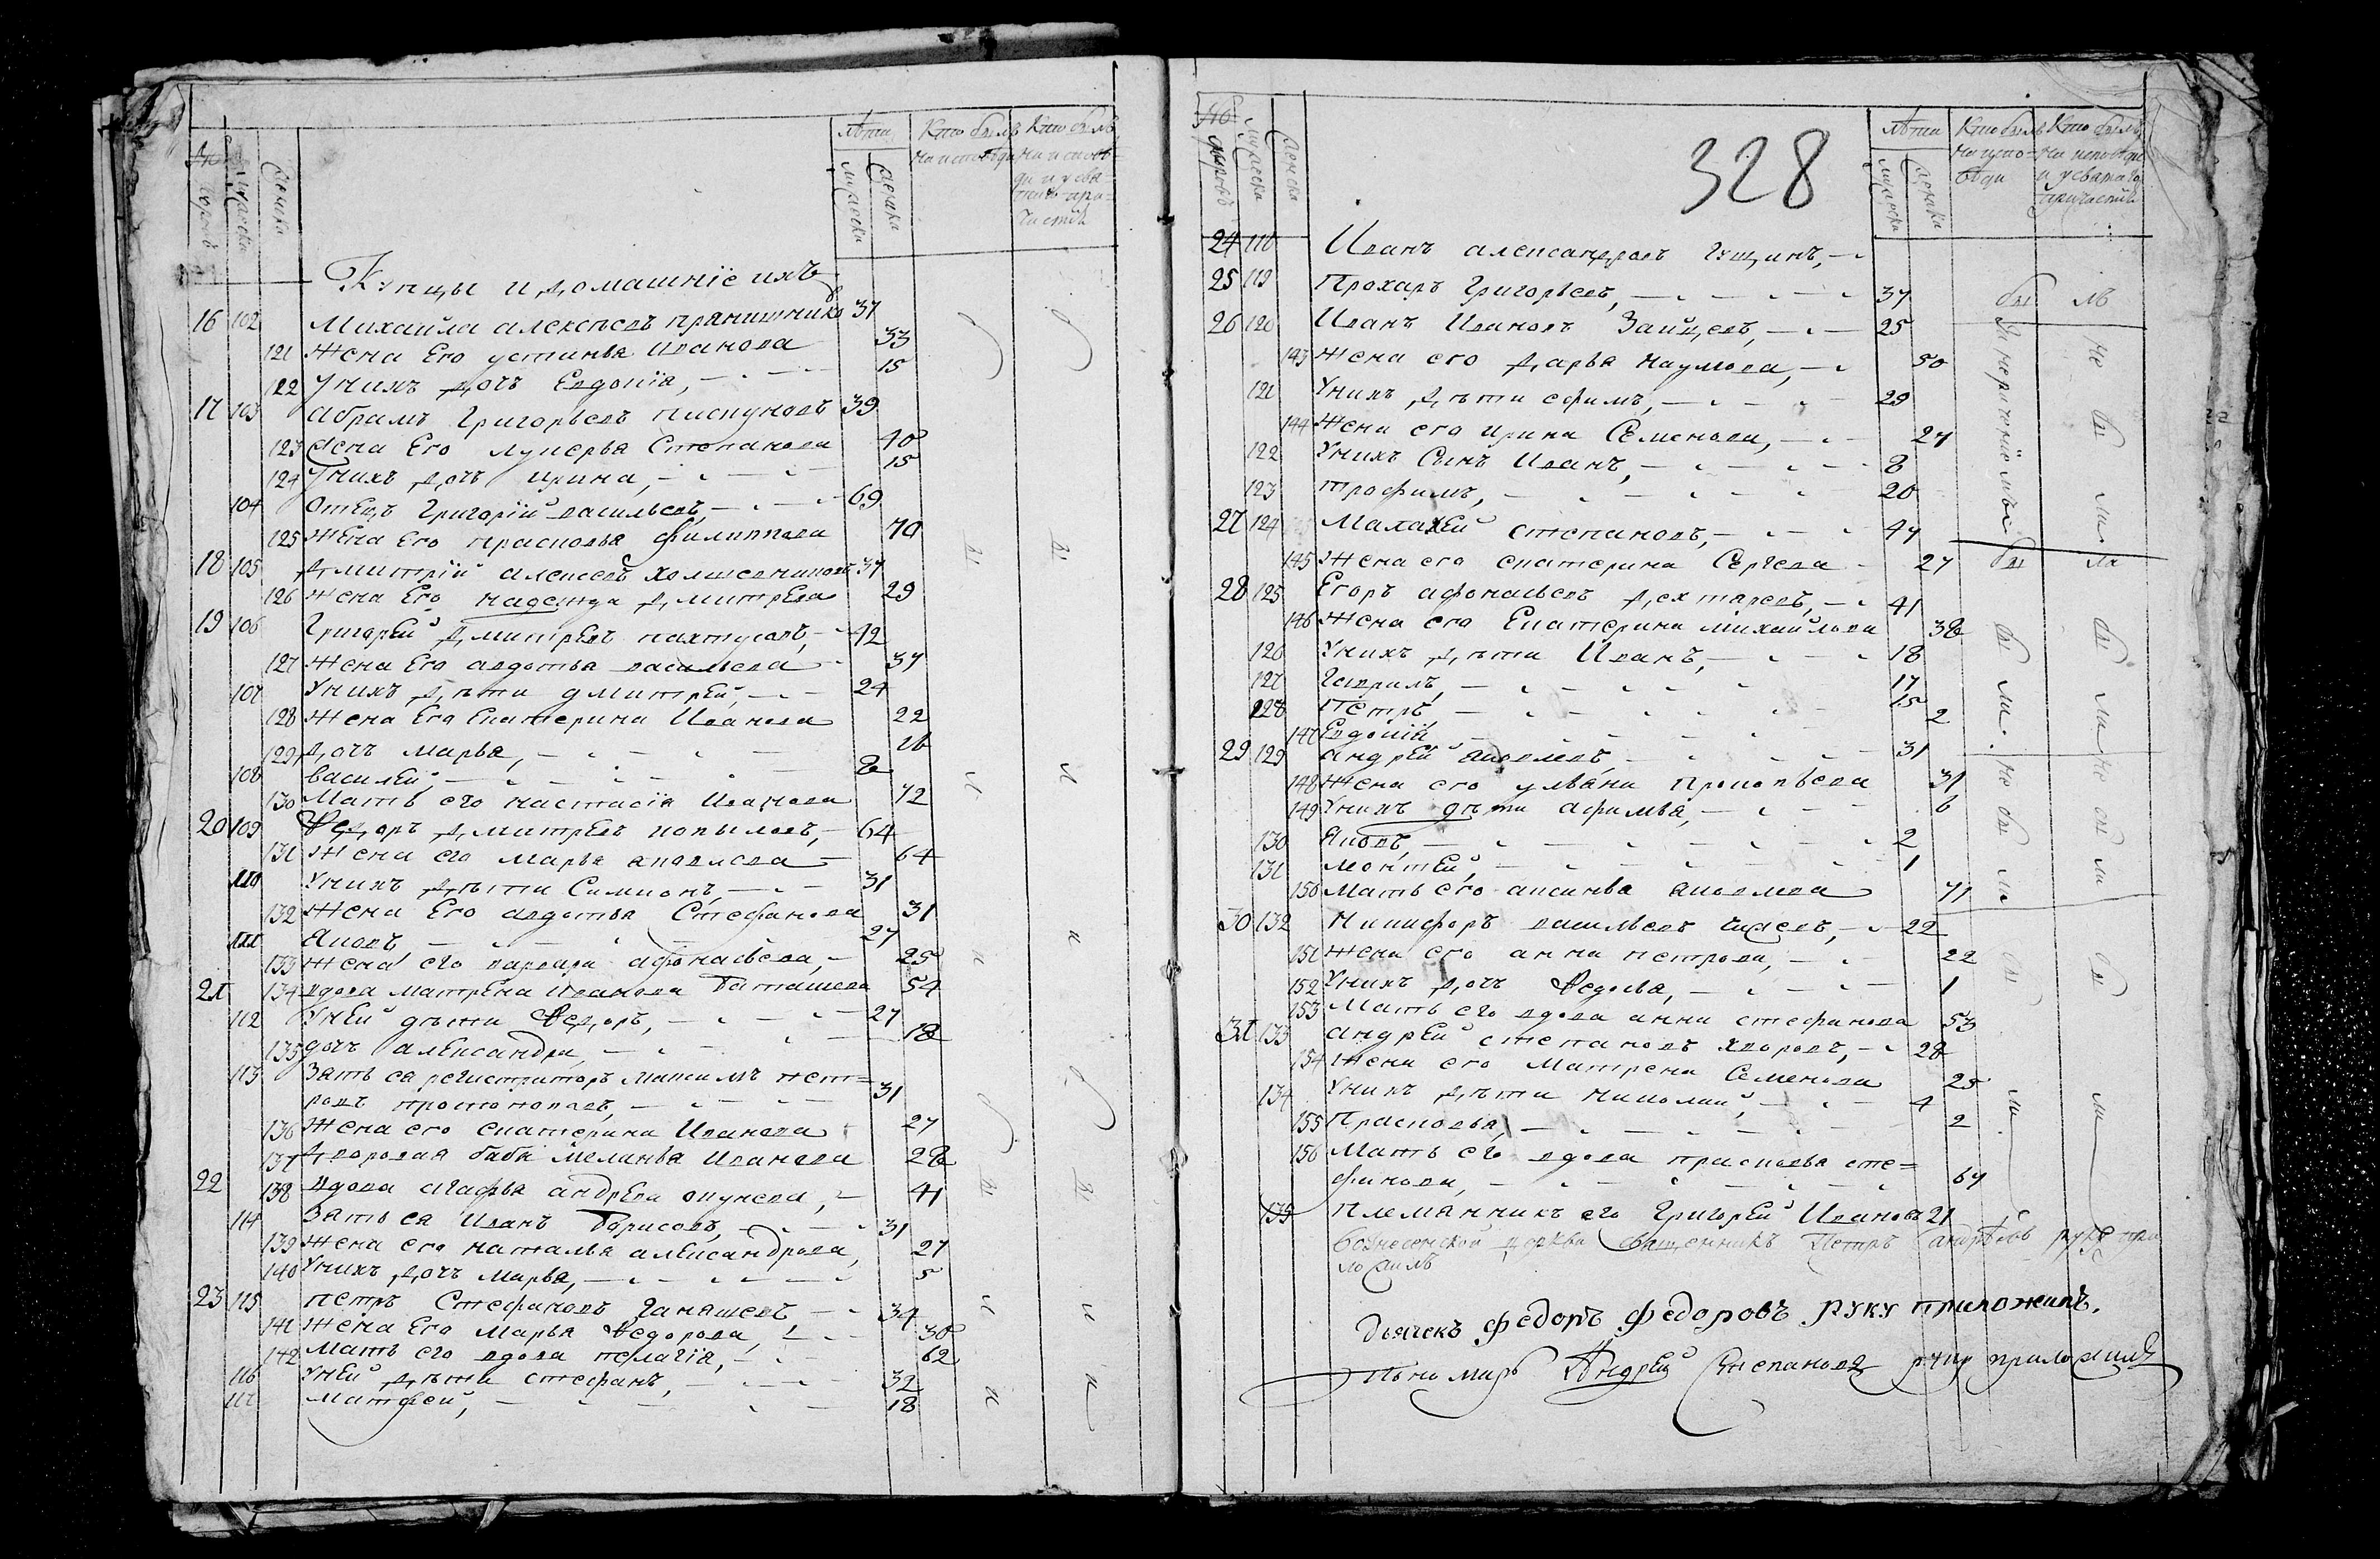 лѣта Кто былъ Кто былъ
на исповѣди на исповѣ=
ди и у свя
таго при=
частія
мужеска женска мужеска женска
Купцы и домашніе ихъ
16 102 Михайла алексѣевъ прянишников 37
121 жена Его устинья Иванова 33
122 У нихъ дочь Евдокія, 15
17 103 абрамъ Григорьевъ пискуновъ 39
123 жена Его лукерья Степанова 40
124 У нихъ дочь ирина, 15
104 Отецъ Григорій васильевъ, 69
125 Жена Его прасковья филиппова 70
18 105 Дмитрій алексеевъ 37
126 жена Его надежда дмитрева 29
19 106 Григорей дмитревъ пахтусовъ, 42
127 жена Его авдотья васильева 37
107 У нихъ дѣти дмитрей, 24
128 жена Его Екатерина Иванова 22
129 дочь марья, 16
108 василей, 8
130 Мать его настасія Иванова 72
20 109 Ѳедоръ дмитревъ копыловъ, 64
131 жена его марья яковлева 64
110 У нихъ дѣти Симионъ, 31
132 жена Его авдотья Стефанова 31
111 Яковъ, 27
133 жена его варвара афонасьева, 25
21 134 вдова матрена Иванова Баташева 54
112 У ней дѣти Ѳедоръ, 27
135 дочь александра, 18
113 Зять ея регистраторъ максимъ пет=
ровъ протопоповъ, 31
136 жена его екатерина Иванова 27
137 дворовая баба меланья Иванова 28
22 138 вдова агафья андрева окунева, 41
114 Зять ея Иванъ Борисовъ, 31
139 жена его наталья александрова, 27
140 У нихъ дочь марья, 5
23 115 петръ Стефановъ Ганяшевъ, 34
141 жена Его марья Ѳедорова, 30
142 мать его вдова пелагія, 62
116 У ней дѣти стефанъ, 32
117 матфей, 18
328
№ дворовъ мужеска женска
лѣта Кто былъ Кто былъ
на испо= на исповѣди
вѣди и у святаго
причастія
мужеска женска
24 118 Иванъ александровъ Гущинъ,
25 119 Прохаръ Григорьевъ, 37 бы лъ
26 120 Иванъ Ивановъ Зайцевъ, 25
143 жена его дарья наумова, 50
121 У нихъ дѣти ефимъ, 29
144 жена его ирина Семенова, 27
122 У нихъ Сынъ Иванъ, 8
123 трофимъ, 20
27 124 Малахей степановъ, 47
145 жена его екатерина Сергева 27 бы ли
28 125 Егоръ афонасьевъ дехтяревъ, 41
146 жена его Екатерина михайлова 38
126 У нихъ дѣти Иванъ, 18
127 Гаврилъ, 17
128 петръ, 15
147 Евдокія 2
29 129 андрей яковлевъ, 31
148 жена его ульяна Прокопьева 31
149 У нихъ дѣти афимья, 6
130 Яковъ, 2
131 мокѣй, 1
150 мать его аксинья яковлева 71
30 132 никифоръ васильевъ 22
151 жена его анна петрова, 22
152 У нихъ дочь Ѳедосья, 1
153 мать его вдова анна стефанова 53
31 133 андрей степановъ хворовъ, 28
154 жена его матрена Семенова 25
134 У нихъ дѣти николай, 4
155 Прасковья, 2
156 мать его вдова прасковья сте=
фанова, 67
135 племянникъ его Григорей Ивановъ 21
вознесенской церкви священникъ Петръ андрѣевъ руку при
ложилъ
Дьячекъ федоръ федоровъ руку приложилъ.
Пономарь Андрей Степановъ руку приложилъ